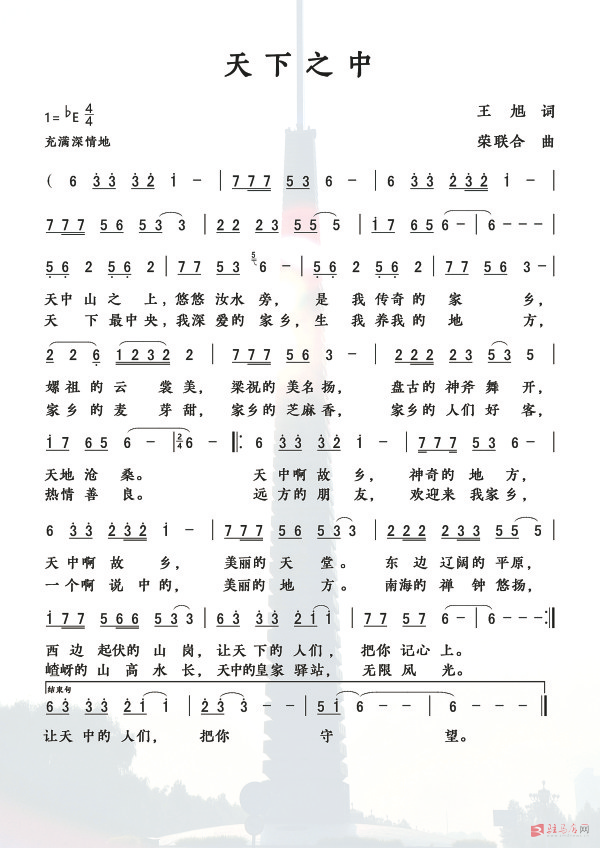 天下之中
1=♭E 4/4
王 旭 词
充满深情地
荣联合 曲
( 6 3̇3̇ 3̇2̇ 1̇ - | 777 53 6 - | 6 3̇3̇ 2̇3̇2̇ 1̇ |
777 56 53 3 | 22 223 55 5 | 1̇7 656 - | 6 - - - |
56 2 56 2 | 77 53 6 - | 56 2 56 2 | 77 56 3 - |
天中 山 之 上，悠悠 汝水 旁， 是 我 传奇 的 家 乡，
天 下 最中央，我深 爱的 家乡，生 我 养我的 地 方，
2 2 2 6 | 1232 2 | 777 56 3 - | 222 23 53 |
嫘祖 的 云 裳 美， 梁祝的 美名 扬， 盘古的 神斧 舞 开，
家乡 的 麦 芽 甜， 家乡的 芝麻香， 家乡的 人们 好 客，
1̇7 65 6 - | 2/4 6 - :| 6 3̇3̇ 3̇2̇ 1̇ - | 777 53 6 - |
天地 沧 桑。 天 中啊 故 乡， 神奇的 地 方，
热情 善 良。 远 方的 朋 友， 欢迎来 我家乡，
6 3̇3̇ 2̇3̇2̇ 1̇ - | 777 56 53 3 | 222 223 55 5 |
天 中啊 故 乡， 美丽的 天 堂。 东 边 辽阔的 平原，
一个啊 说 中的， 美丽的 地 方。 南海的 禅 钟 悠扬，
1̇77 566 53 3 | 63̇ 3̇3̇ 2̇1̇ 2̇ | 77 57 6 - | 6 - - - :|
西 边 起伏的 山 岗，让天 下的 人们， 把你 记心 上。
嵖岈的 山 高 水 长，天中的皇家 驿站， 无限 风 光。
结束句
63̇ 3̇3̇ 2̇1̇ 2̇ | 2̇ 3̇3̇ - - | 5̇1̇ 6 - - | 6 - - - ‖
让天 中的 人们， 把你 守 望。
驻马店网